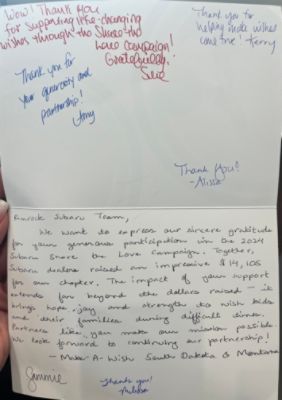 Wow! Thank you
for supporting life-changing
wishes through the Share the
Love Campaign!
Gratefully,
Sue
Thank you for
helping make wishes
come true! Kerry
Thank you for
your generosity and
partnership!
Amy
Thank you!
-Alissa
Rimrock Subaru Team,
We want to express our sincere gratitude
for your generous participation in the 2024
Subaru Share the Love Campaign. Together,
Subaru dealers raised an impressive $14,105
for our chapter. The impact of your support
extends far beyond the dollars raised - it
brings hope, joy, and strength to wish kids
and their families during difficult times.
Partners like you make our mission possible.
We look forward to continuing our partnership!
- Make-A-Wish South Dakota & Montana
Thank you!